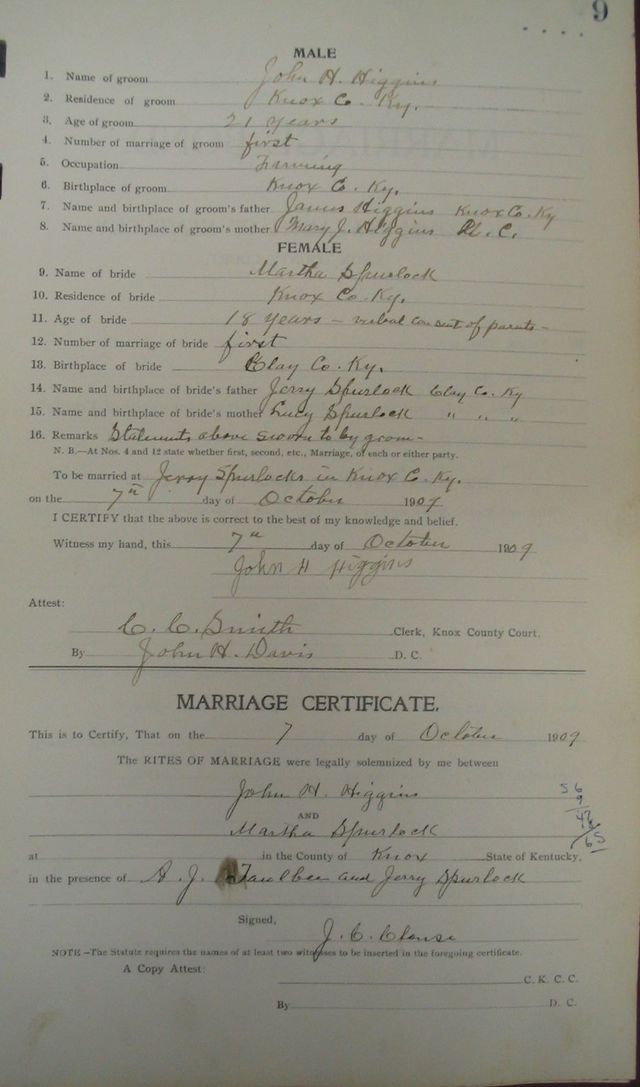 9
MALE
1. Name of groom John H. Higgins
2. Residence of groom Knox Co. Ky.
3. Age of groom 21 years
4. Number of marriage of groom first
5. Occupation Farming
6. Birthplace of groom Knox Co. Ky.
7. Name and birthplace of groom's father James Higgins Knox Co. Ky
8. Name and birthplace of groom's mother Mary J. Higgins N. C.
FEMALE
9. Name of bride Martha Spurlock
10. Residence of bride Knox Co. Ky.
11. Age of bride 18 years – verbal consent of parents –
12. Number of marriage of bride first
13. Birthplace of bride Clay Co. Ky.
14. Name and birthplace of bride's father Jerry Spurlock Clay Co. Ky
15. Name and birthplace of bride's mother Lucy Spurlock " " "
16. Remarks Statements above sworn to by groom –
N. B.—At Nos. 4 and 12 state whether first, second, etc., Marriage, of each or either party.
To be married at Jerry Spurlocks in Knox C. Ky.
on the 7th day of October 1909
I CERTIFY that the above is correct to the best of my knowledge and belief.
Witness my hand, this 7th day of October 1909
John H Higgins
Attest:
C. C. Smith Clerk, Knox County Court.
By John H. Davis D. C.
MARRIAGE CERTIFICATE.
This is to Certify, That on the 7 day of October 1909
The RITES OF MARRIAGE were legally solemnized by me between
John H. Higgins
AND
Martha Spurlock
at in the County of Knox State of Kentucky,
in the presence of A. J. and Jerry Spurlock
Signed,
J. C.
NOTE—The Statute requires the names of at least two witnesses to be inserted in the foregoing certificate.
A Copy Attest:
C. K. C. C.
By D. C.